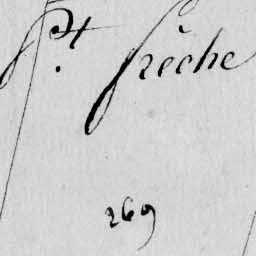 Pt. frêche
269